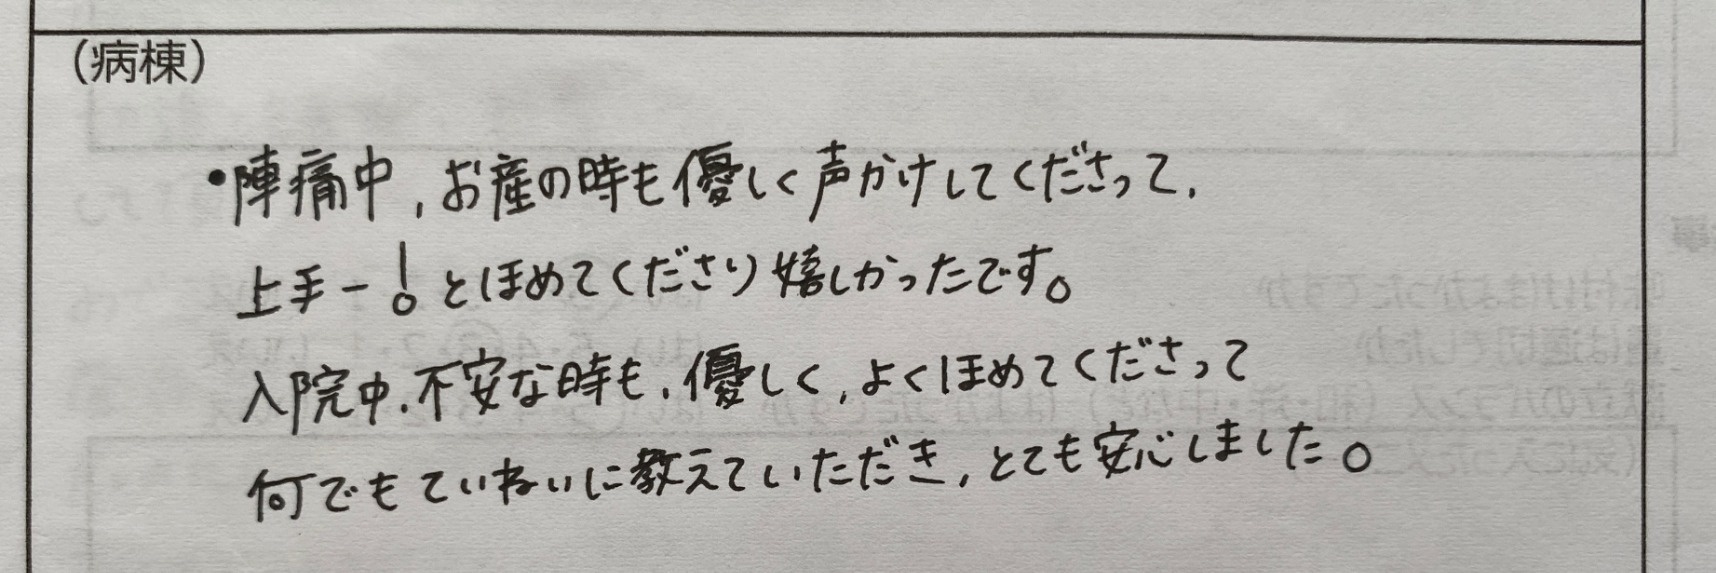 （病棟）
・陣痛中、お産の時も優しく声かけしてくださって、
上手ー！とほめてくださり嬉しかったです。
入院中、不安な時も、優しく、よくほめてくださって
何でもていねいに教えていただき、とても安心しました。